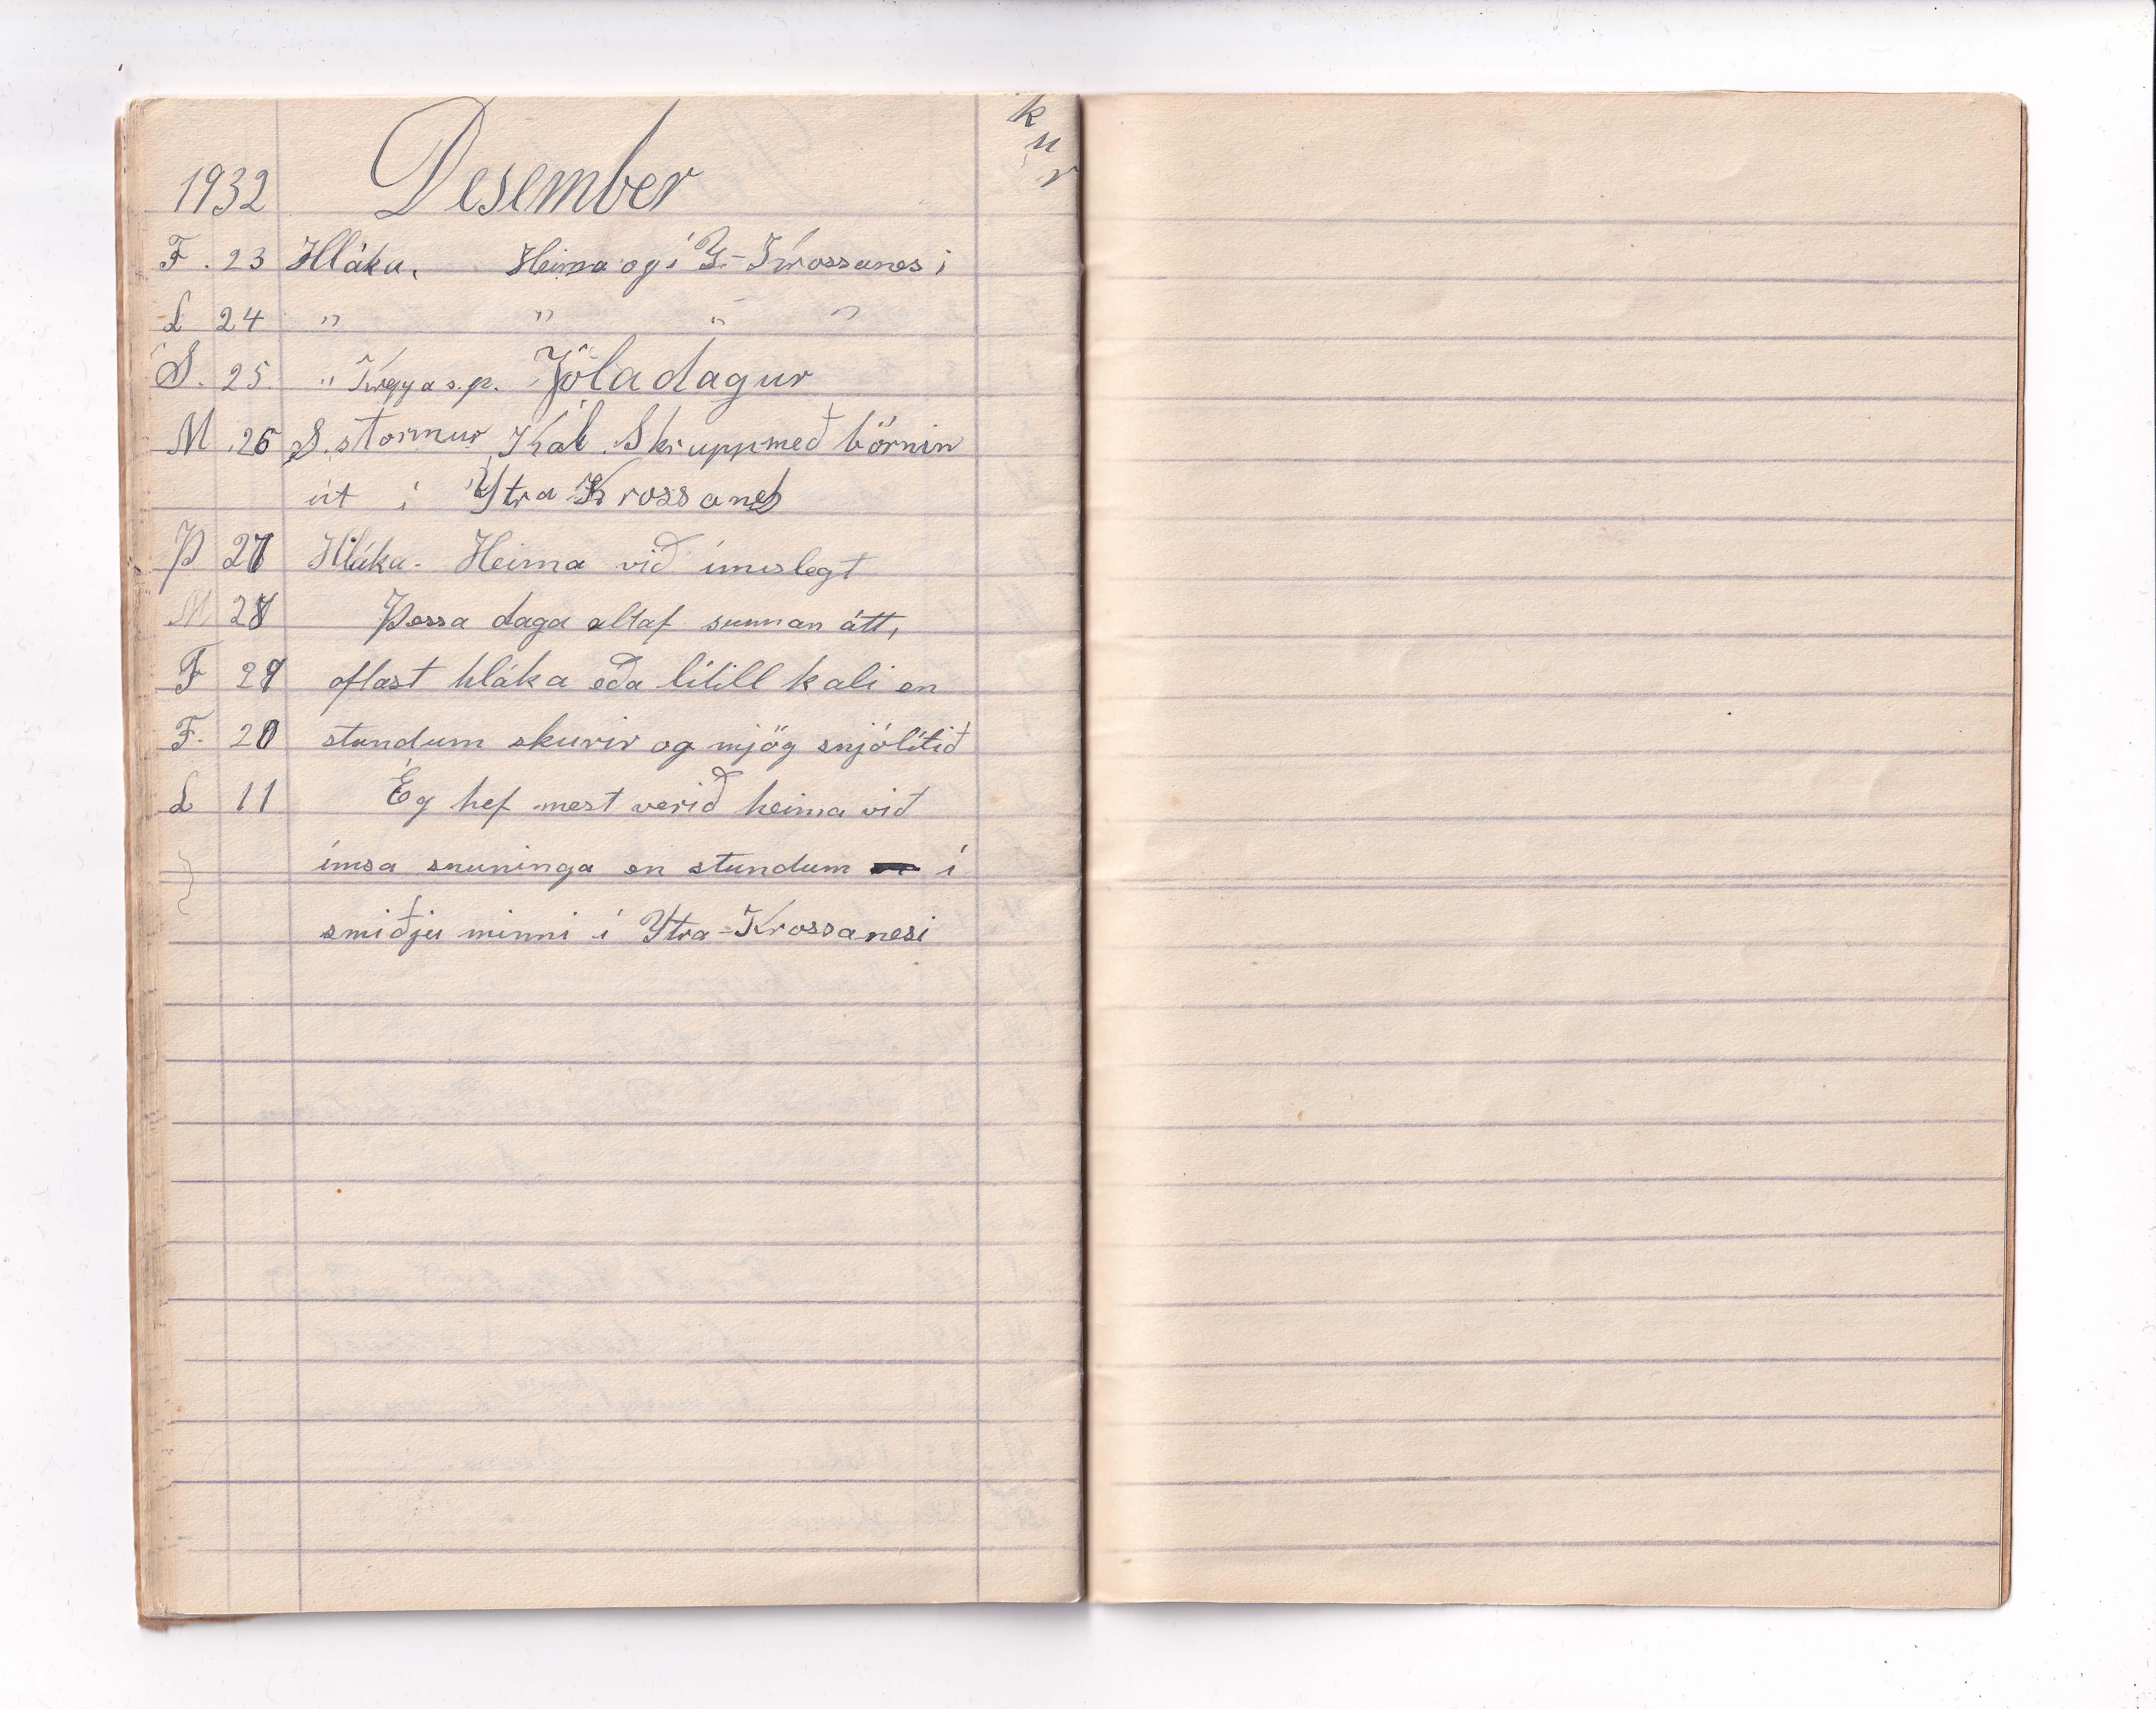 k
u
r
1932 Desember
F. 23 Hláka. Heima og í Y-Krossanesi
L 24 " " " "
S. 25. " Jóladagur
M. 26 S. stormur Kál. Skrupp með börnin
út í Ytra Krossanes
Þ 27 Hláka. Heima við ímislegt
M 28 Þessa daga altaf sunnan átt,
F 29 oftast hláka eða lítill kali en
F. 20 stundum skurir og mjög snjólítið
L 11 Ég hef mest verið heima við
ímsa snuninga en stundum í
smiðju minni í Ytra-Krossanesi